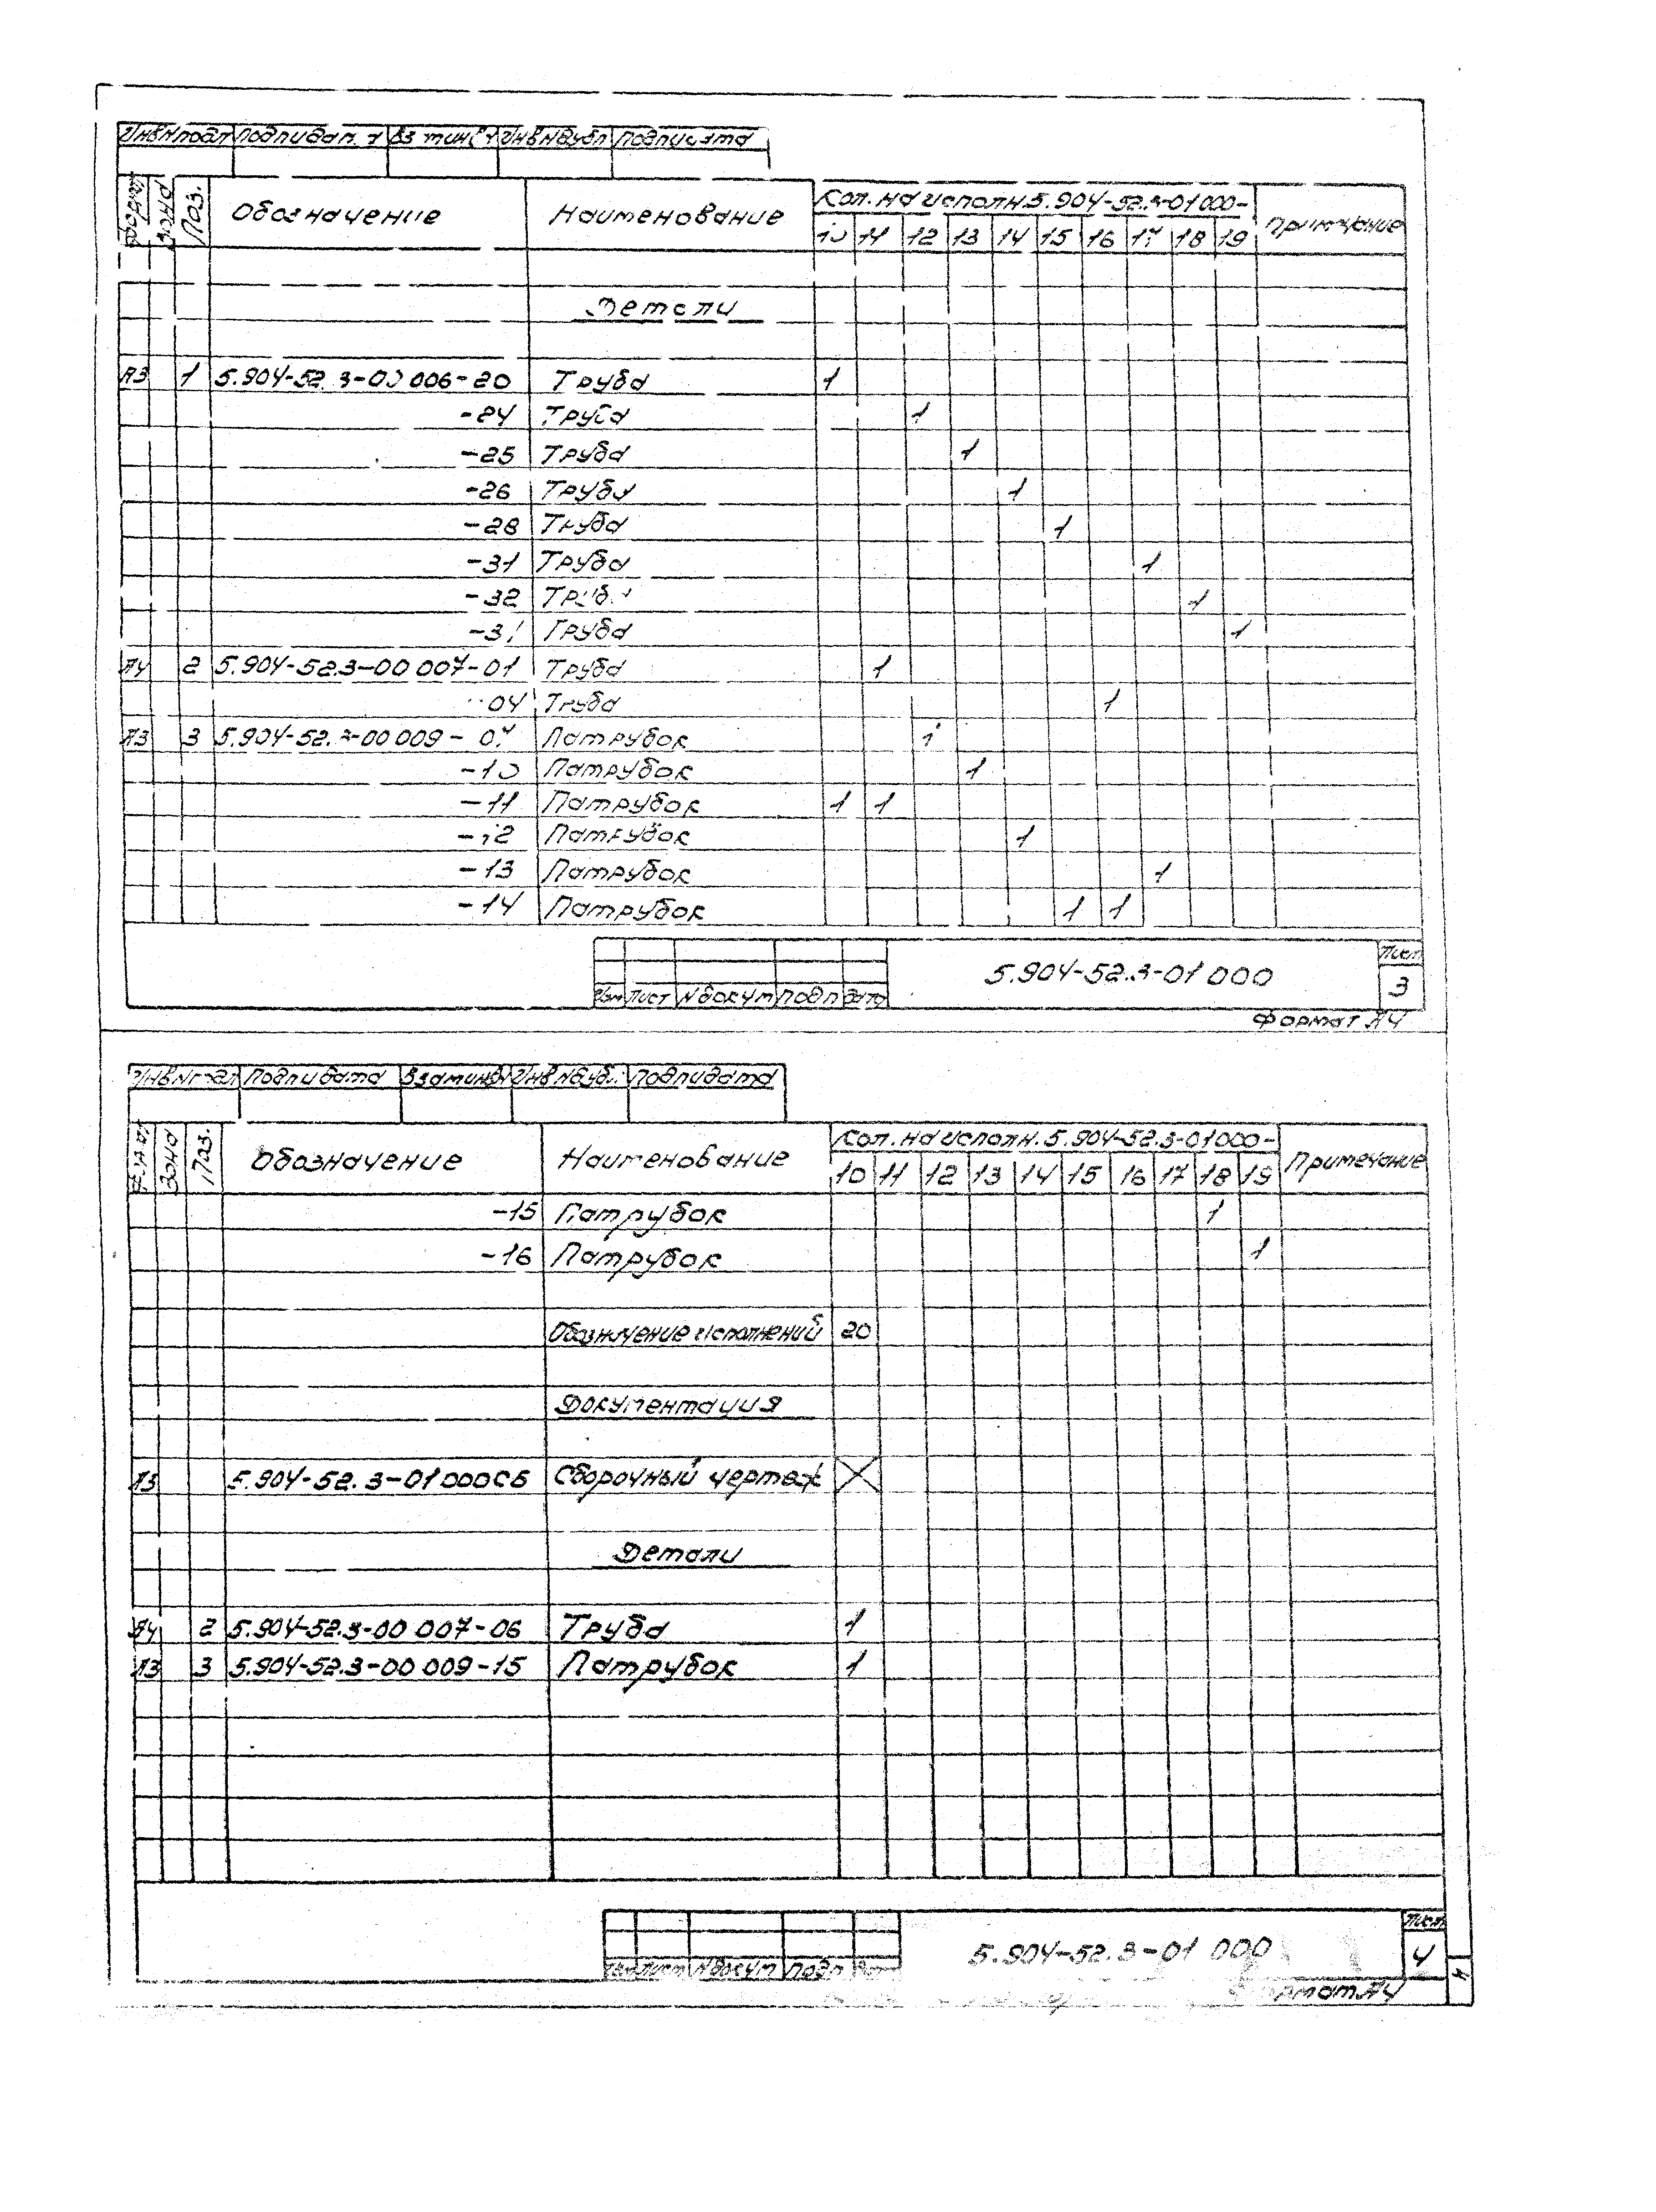 Инв.N подл Подп и дат Взам инв Инв N дубл Подп и дата
Формат Зона Поз. Обозначение Наименование Кол. на исполн. 5.904-52.3-01000- Примечание
10 11 12 13 14 15 16 17 18 19
Детали
А3 1 5.904-52.3-00 006-20 Труба 1
-24 Труба 1
-25 Труба 1
-26 Труба 1
-28 Труба 1
-31 Труба 1
-32 Труба 1
Труба 1
А4 2 5.904-52.3-00 007-01 Труба 1
04 Труба 1
А3 3 5.904-52.3-00 009- Патрубок 1
-10 Патрубок 1
-11 Патрубок 1 1
-12 Патрубок 1
-13 Патрубок 1
-14 Патрубок 1 1
5.904-52.3-01 000
Лист
3
Изм Лист N докум Подп Дата
Формат А4
Инв N подл Подп и дата Взам инв Инв N дубл Подп и дата
Формат Зона Поз. Обозначение Наименование Кол. на исполн. 5.904-52.3-01000- Примечание
10 11 12 13 14 15 16 17 18 19
-15 Патрубок 1
-16 Патрубок 1
Обозначение исполнений 20
Документация
А3 5.904-52.3-01000СБ Сборочный чертеж X
Детали
А4 2 5.904-52.3-00 007-06 Труба 1
А3 3 5.904-52.3-00 009-15 Патрубок 1
5.904-52.3-01 000
Лист
4
Изм Лист N докум Подп Дат
Формат А4
4